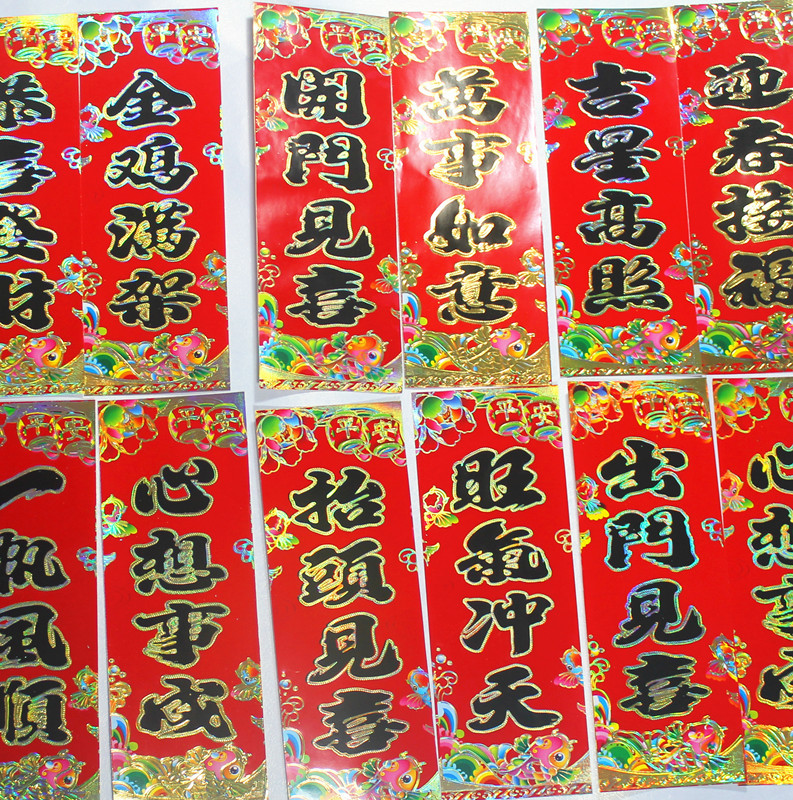 恭喜發財
平安
金鸡满架
平安
開門見喜
平安
萬事如意
平安
吉星高照
平安
迎春接福
一帆風順
平安
心想事成
平安
抬頭見喜
平安
旺氣冲天
平安
出門見喜
心想事成